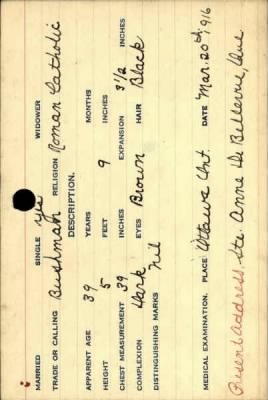 MARRIED SINGLE yes WIDOWER
TRADE OR CALLING Bushman RELIGION Roman Catholic
DESCRIPTION.
APPARENT AGE 39 YEARS MONTHS
HEIGHT 5 FEET 9 INCHES
CHEST MEASUREMENT 39 INCHES EXPANSION 3 1/2 INCHES
COMPLEXION Dark EYES Brown HAIR Black
DISTINGUISHING MARKS Nil
MEDICAL EXAMINATION. PLACE Ottawa Ont. DATE Mar. 20th, 1916
Present address, Ste. Anne De Bellevue, Que